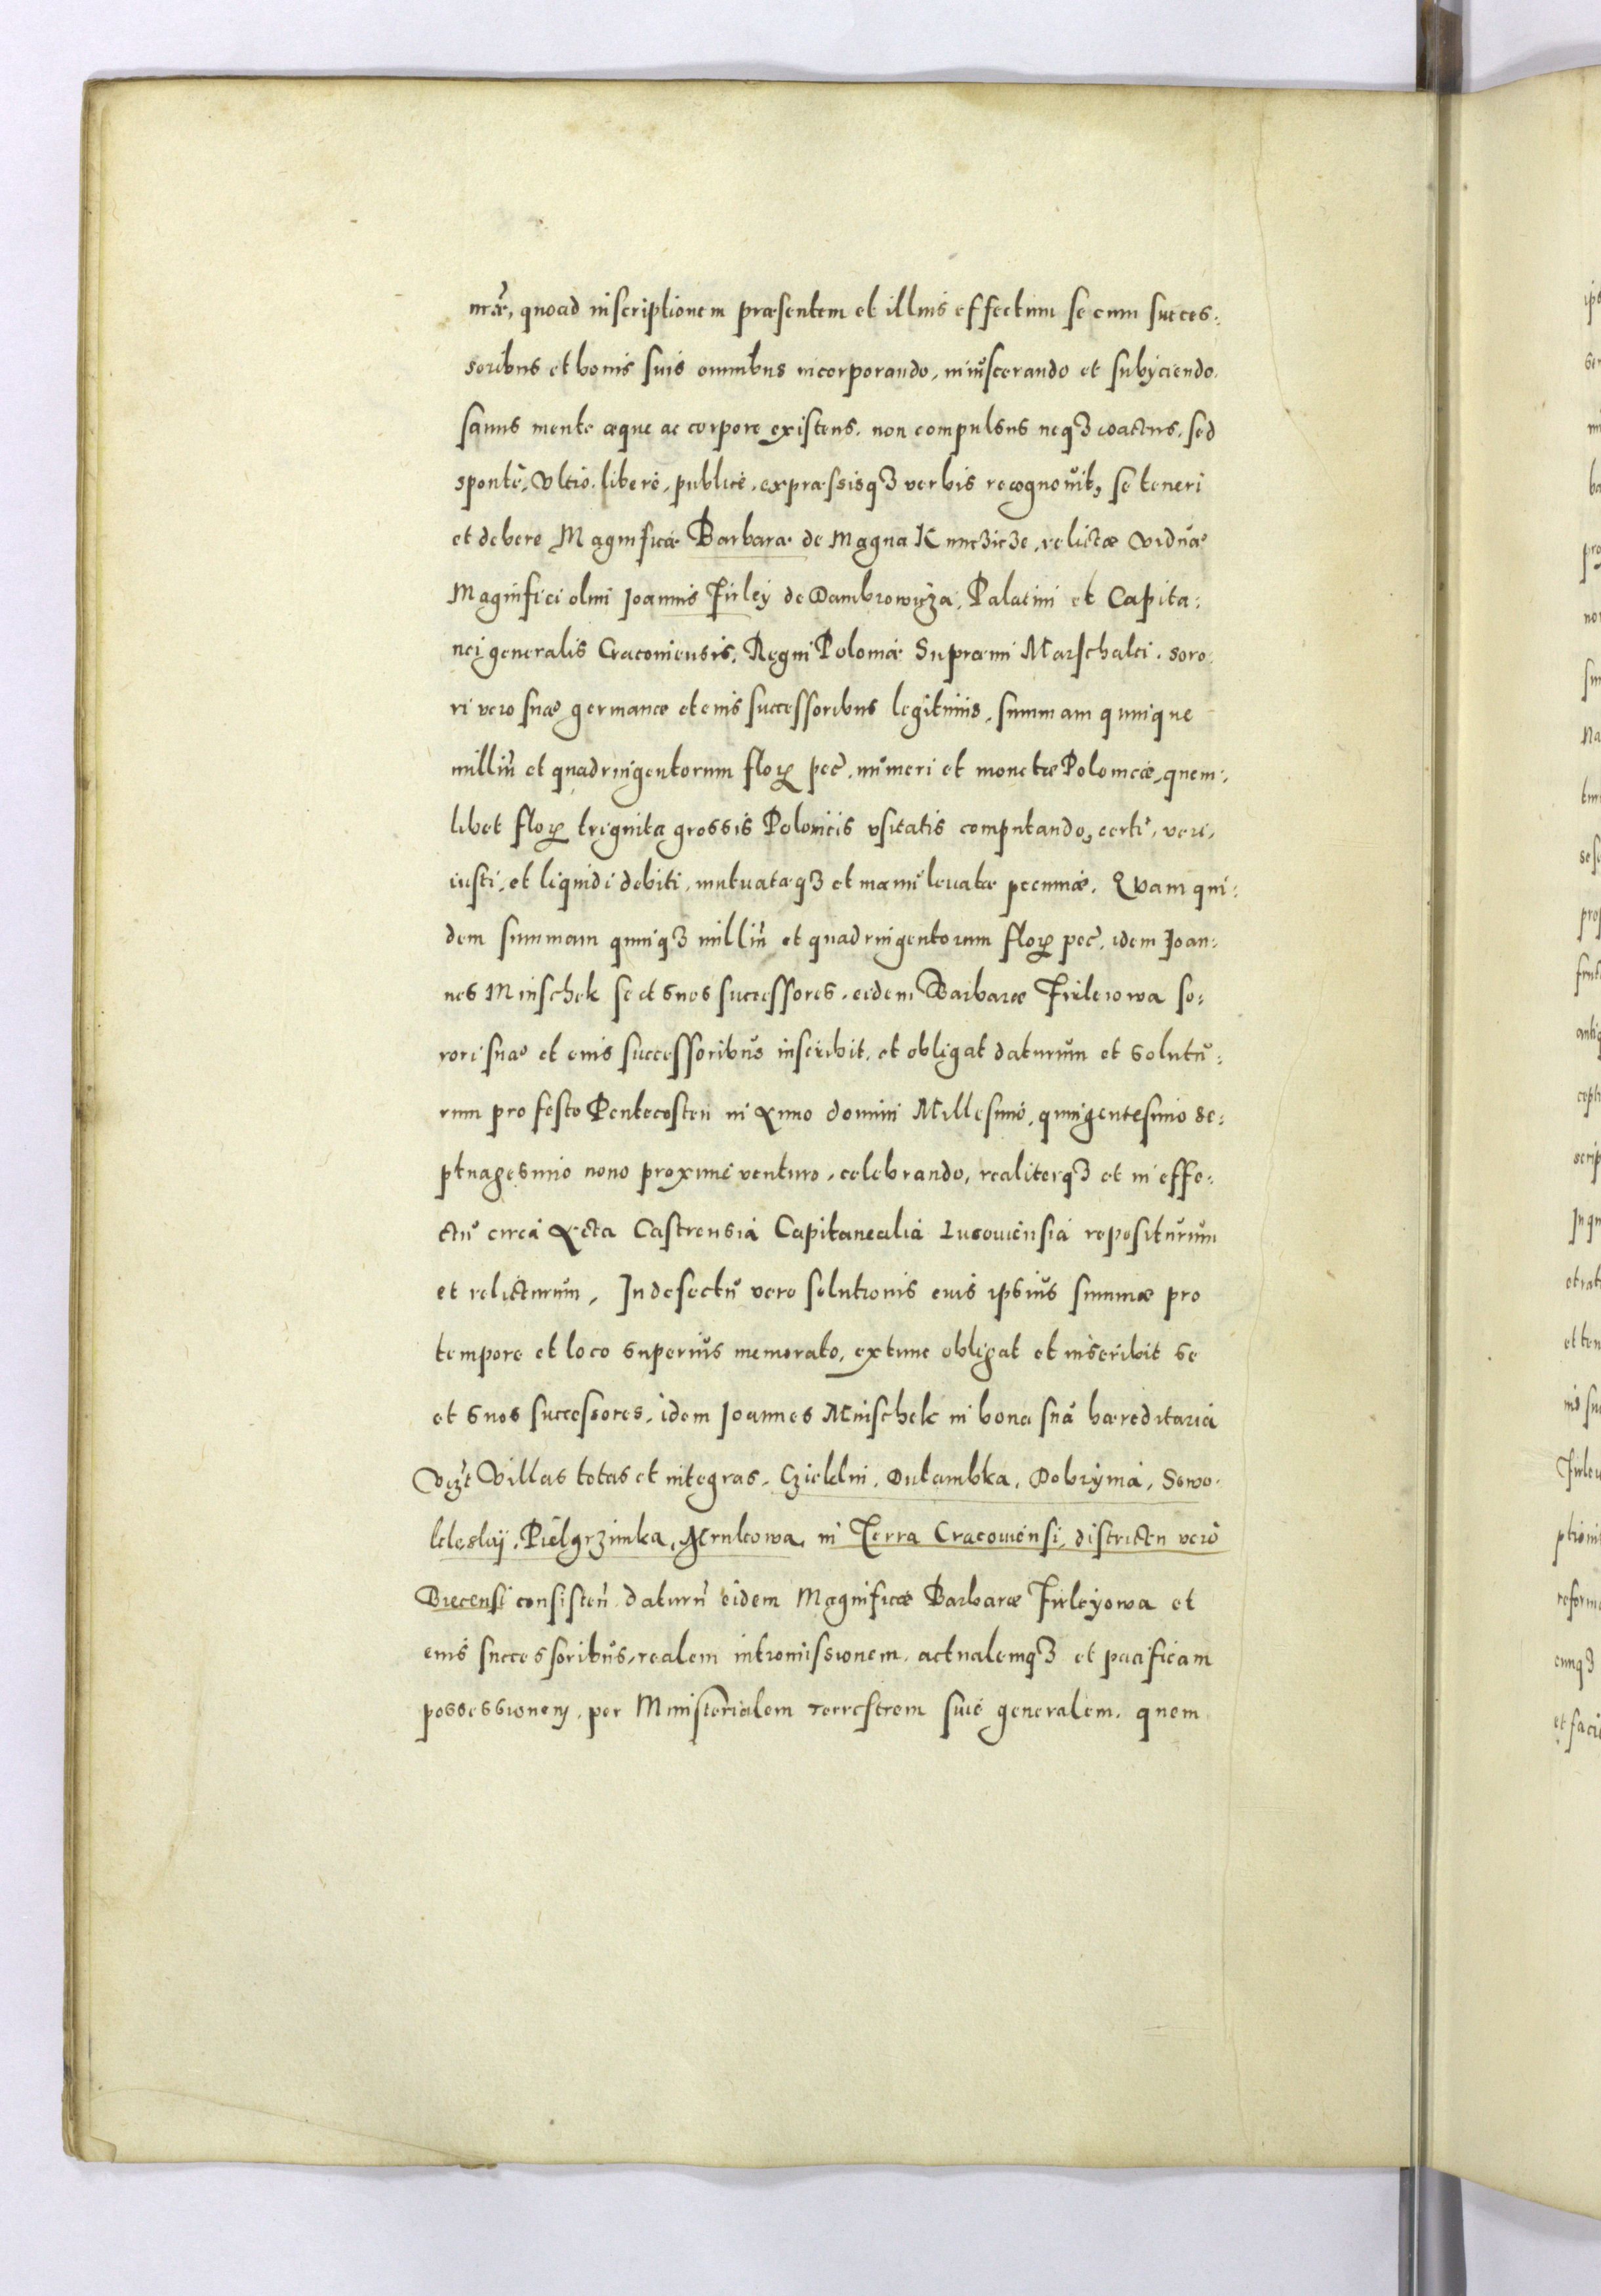 nr̃æ, quoad inscriptionem præsentem et illius effectum se cum succes:
soribus et bonis suis omnibus incorporando, inuiscerando et subijciendo.
sanus mente æque ac corpore existens. non compulsus neqȝ coactus, sed
sponte, vltro, libere, publice, expræssisqȝ verbis recognouit, se teneri
et debere Magnificæ Barbaræ de Magna Kunczicze, relictæ viduæ
Magnifici olim Joannis Firley de Dambrowicza, Palatini et Capita:
nei generalis Cracouiensis, Regni Poloniæ Supræmi Marschalci. soro:
ri vero suæ germanæ et eius successoribus legitimis, summam quinque
milliū et quadringentorum floꝝ pec̃. numeri et monetæ Polonicæ, quem:
libet floꝝ triginta grossis Polonicis vsitatis computando, certi, veri,
iusti, et liquidi debiti, mutuatæqȝ et manu leuatæ pecuniæ. Quam qui:
dem summam quinqȝ milliū et quadringentorum floꝝ pec̃. idem Joan:
nes Mnischek se et suos successores, eidem Barbaræ Firleiowa so:
rori suæ et eius successoribus inscribit, et obligat daturum et solutu:
rum pro festo Pentecosten in Anno domini Millesimo, quingentesimo se:
ptuagesimo nono proxime venturo, celebrando, realiterqȝ et in effe:
ctu circa Acta Castrensia Capitanealia Lucouiensia repositurum
et relicturum, In defectu vero solutionis eius ipsius summæ pro
tempore et loco superius memorato, extunc obligat et inscribit se
et suos successores, idem Joannes Mnischek in bona sua hæreditaria
vcꝫt Villas totas et integras, Czieklin, Dulambka, Dobrynia, Sowo:
lclesky, Pielgrzimka, Mrukowa, in Terra Cracouiensi, districtu vero
Biecensi consisteñ daturū eidem Magnificæ Barbaræ Firleyowa et
eius successoribus, realem intromissionem, actualemqȝ et pacificam
possessionem, per Ministerialem Terrestrem siue generalem, quem